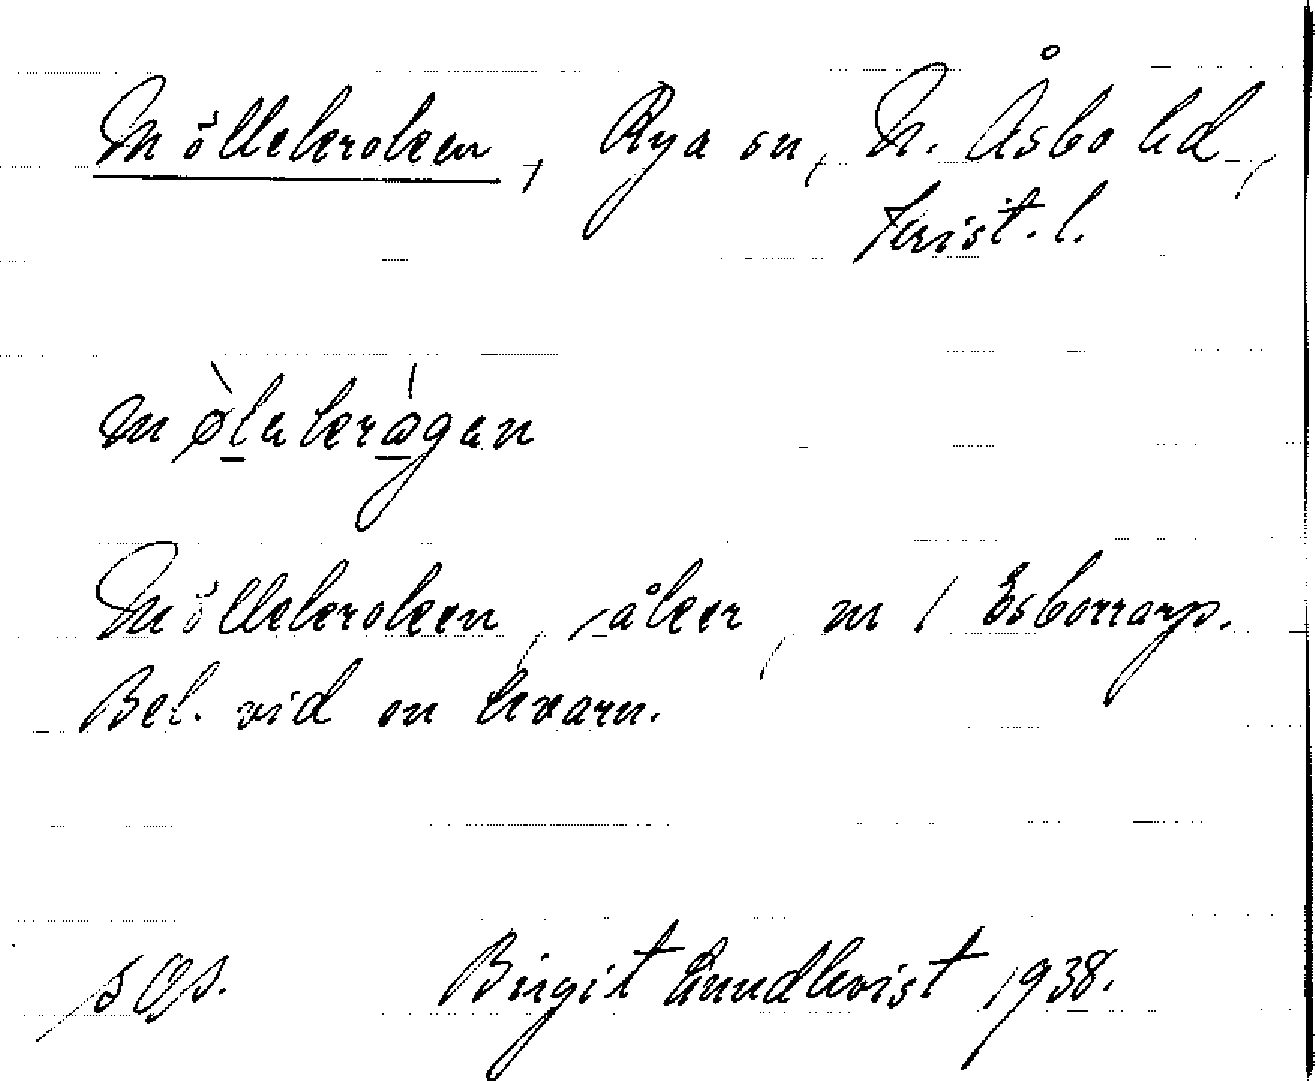 Möllekroken, Rya sn, N. Åsbo hd,
Krist. l.
mø̀lakrågan
Möllekroken, åker, nr 1 Esborrarp.
Bel. vid en kvarn.
sOs. Birgit Lundkvist 1938.